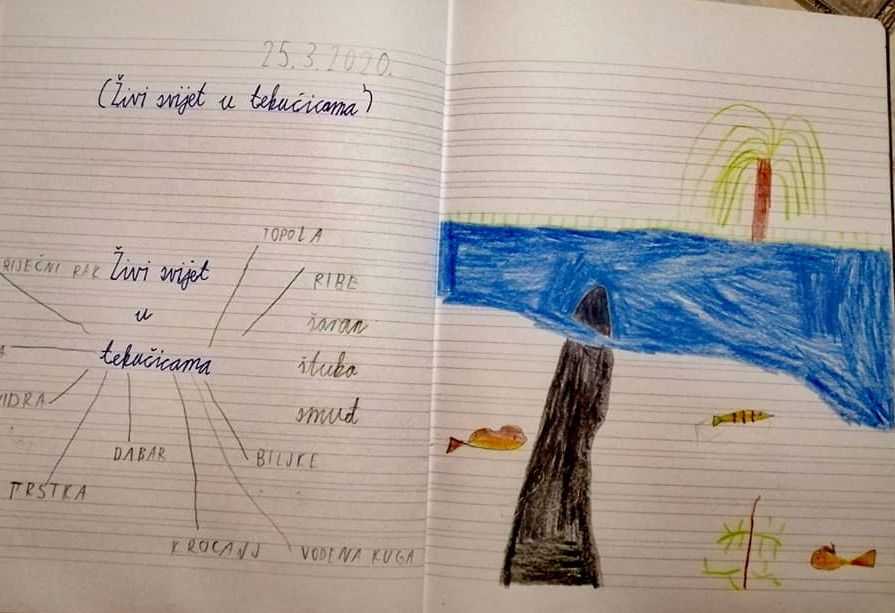 25.3.2020.
(Živi svijet u tekućicama)
TOPOLA
RIJEČNI RAK
Živi svijet
u
tekućicama
RIBE
šaran
štuka
smuđ
VIDRA
DABAR
BILJKE
TRSTKA
KROCANJ
VODENA KUGA